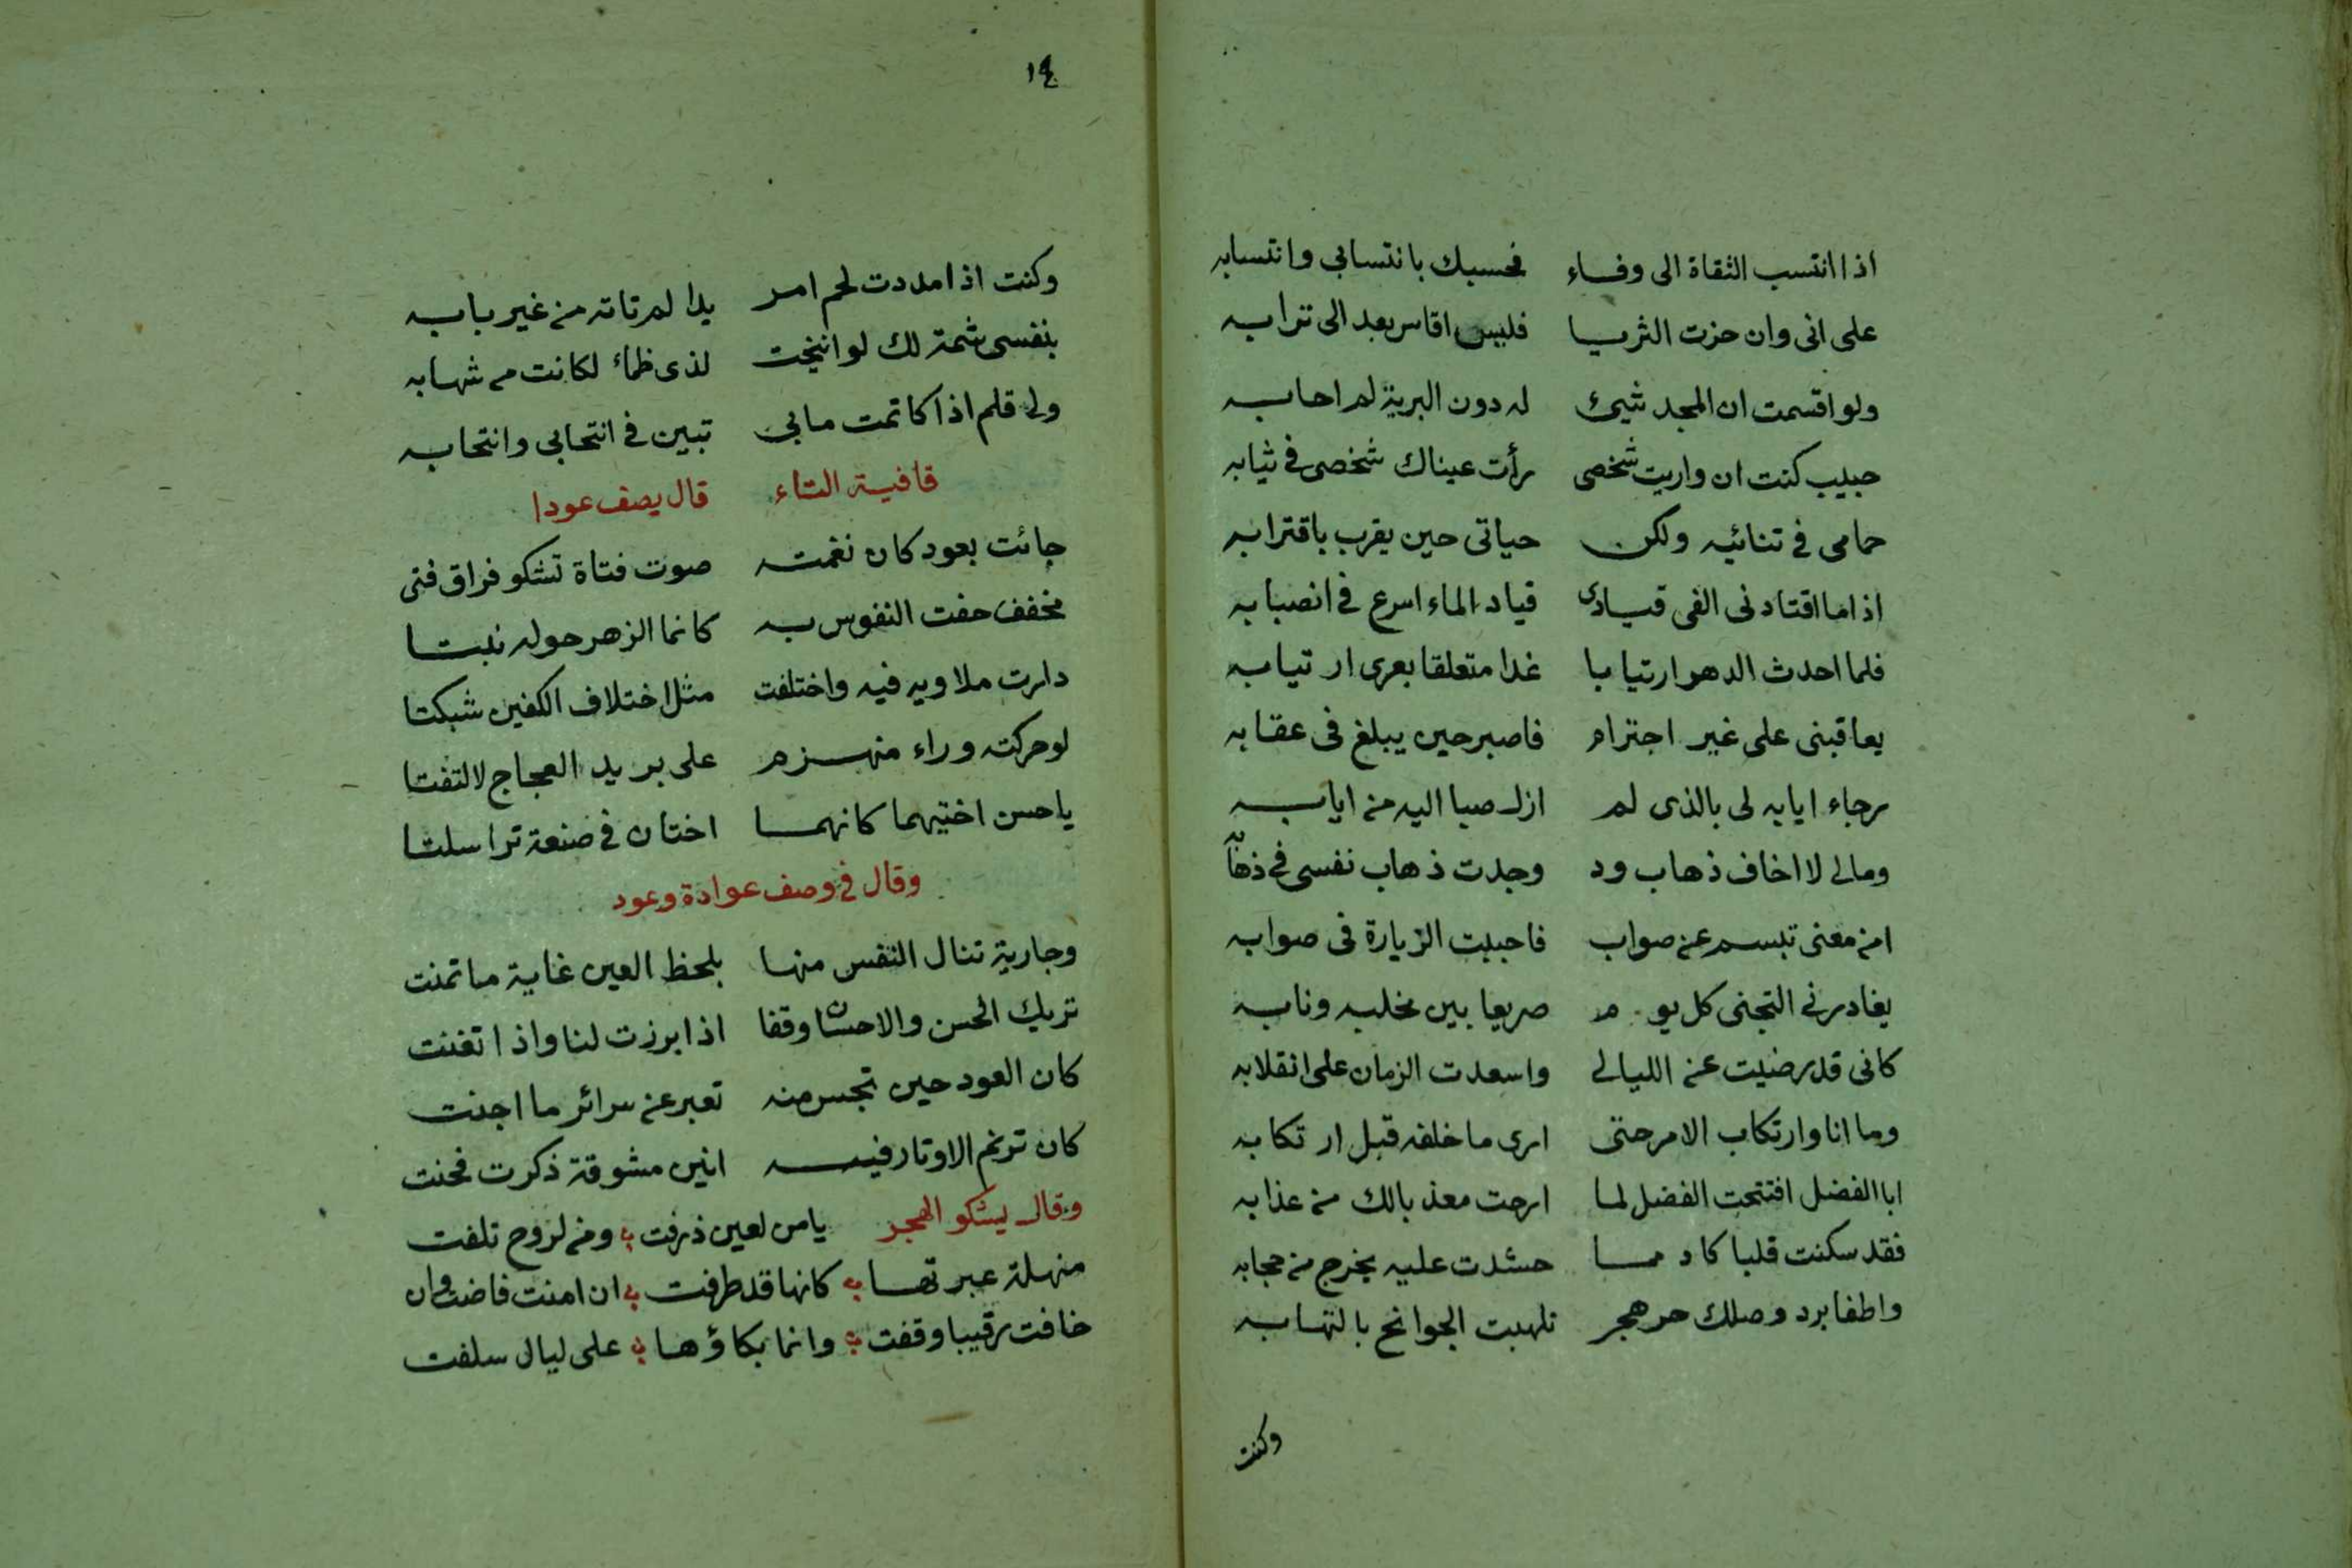 اذا انتسب الثقاة الى وفاء فحسبك بانتسابى وانتسابه
على انى وان حزت الثريا فليس اقاس بعد الى ترابه
ولو اقسمت ان المجد شيئ له دون البرية لم احابه
حبيب كنت ان واريت شخصى رأت عيناك شخصى فى ثيابه
حمامى فى تنائيه ولكن حياتى حين يقرب باقترابه
اذا ما اقتادنى الفى قيادى قياد الماء اسرع فى انصبابه
فلما احدث الدهر ارتيابا غدا متعلقا بعرى ارتيابه
يعاقبنى على غير اجترام فاصبر حين يبلغ فى عقابه
رجاء ايابه لى بالذى لم ازل صبا اليه من ايابه
ومالى لا اخاف ذهاب ود وجدت ذهاب نفسى فى ذهابه
امن معنى تبسم عن صواب فاحببت الزيارة فى صوابه
يغادرنى التجنى كل يوم صريعا بين مخلبه ونابه
كانى قد رضيت عن الليالى واسعدت الزمان على انقلابه
وما انا وارتكاب الامر حتى ارى ما خلفه قبل ارتكابه
ابا الفضل افتتحت الفضل لما ارحت معذبا لك من عذابه
فقد سكنت قلبا كاد مما حشدت عليه يخرج من حجابه
واطفا برد وصلك حر هجر تلهبت الجوانح بالتهابه
وكنت
١٤
وكنت اذا مددت لحم امر يدا لم تاته من غير بابه
بنفسى شمة لك لو انيخت لذى ظماء لكانت من شهابه
ولى قلم اذا كاتمت مابى تبين فى انتحابى وانتحابه
قافية التاء قال يصف عودا
جائت بعود كان نغمته صوت فتاة تشكو فراق فتى
مخفف حفت النفوس به كانما الزهر حوله نبتا
دارت ملاويه فيه واختلفت مثل اختلاف الكفين شبكتا
لو حركته وراء منهزم على بريد العجاج لالتفتا
يا حسن اختيهما كانهما اختان فى صنعة تراسلتا
وقال فى وصف عوادة وعود
وجارية تنال النفس منها بلحظ العين غاية ما تمنت
تريك الحسن والاحسان وقفا اذا برزت لنا واذا تغنت
كان العود حين تجس منه تعبر عن سرائر ما اجنت
كان ترنم الاوتار فيه انين مشوقة ذكرت فحنت
وقال يشكو الهجر يا من لعين ذرفت ومن لروح تلفت
منهلة عبرتها كانها قد طرفت ان امنت فاضت وان
خافت رقيبا وقفت وانما بكاؤها على ليال سلفت